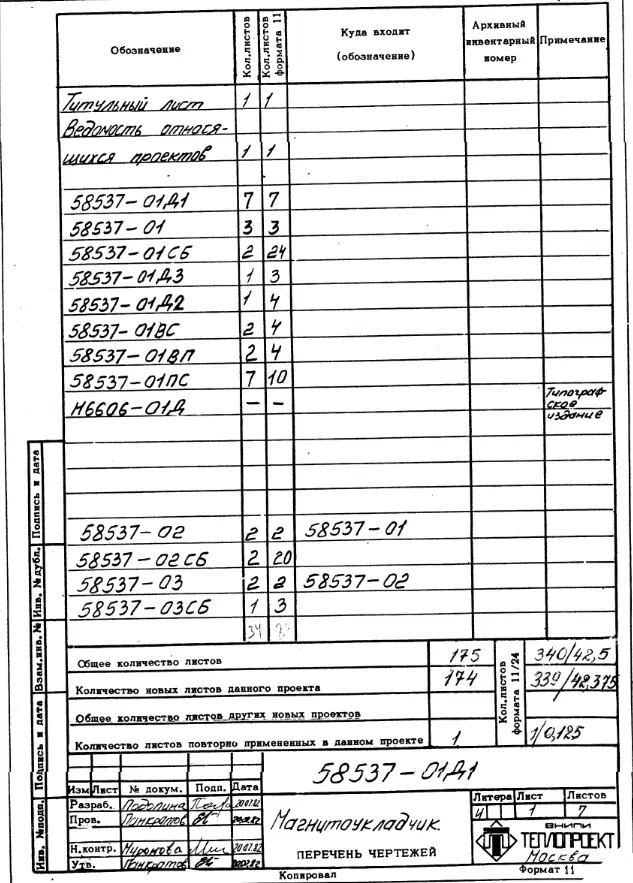 Обозначение Кол.листов Кол.листов формата 11 Куда входит (обозначение) Архивный инвентарный номер Примечание
Титульный лист 1 1
Ведомость относя-
щихся проектов 1 1
58537-01Д1 7 7
58537-01 3 3
58537-01СБ 2 24
58537-01Д3 1 3
58537-01Д2 1 4
58537-01ВС 2 4
58537-01ВП 2 4
58537-01ПС 7 10
Н6606-01Д — — Типограф
ское
издание
58537-02 2 2 58537-01
58537-02СБ 2 20
58537-03 2 2 58537-02
58537-03СБ 1 3
34
Общее количество листов 175 Кол.листов формата 11/24 340/42,5
Количество новых листов данного проекта 174 339/42,375
Общее количество листов других новых проектов
Количество листов повторно примененных в данном проекте 1 1/0,125
58537-01Д1
Изм Лист № докум. Подп. Дата
Разраб. Подолина 20.01.82
Пров. Панкратов
Н.контр. Миронова 20.01.82
Утв. Панкратов
Магнитоукладчик.
ПЕРЕЧЕНЬ ЧЕРТЕЖЕЙ
Литера Лист Листов
И 1 7
ВНИПИ
ТЕПЛОПРОЕКТ
Москва
Копировал Формат 11
Подпись и дата
Инв. № дубл.
Взам.инв. №
Подпись и дата
Инв. №подп.